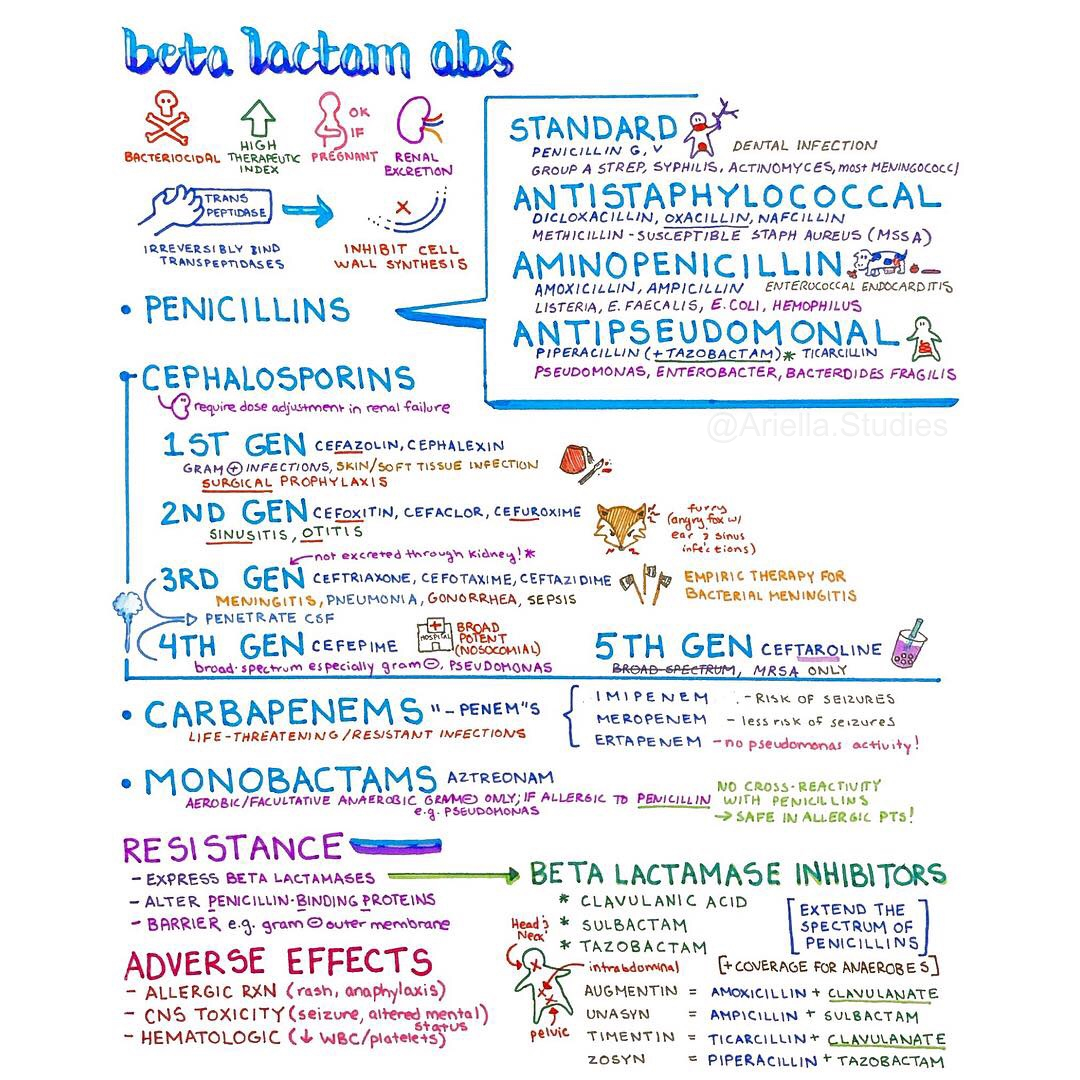 beta lactam abs
BACTERIOCIDAL
HIGH
THERAPEUTIC
INDEX
OK
IF
PREGNANT
RENAL
EXCRETION
TRANS
PEPTIDASE
IRREVERSIBLY BIND
TRANSPEPTIDASES
INHIBIT CELL
WALL SYNTHESIS
• PENICILLINS
STANDARD
PENICILLIN G, V
DENTAL INFECTION
GROUP A STREP, SYPHILIS, ACTINOMYCES, MOST MENINGOCOCCI
ANTISTAPHYLOCOCCAL
DICLOXACILLIN, OXACILLIN, NAFCILLIN
METHICILLIN-SUSCEPTIBLE STAPH AUREUS (MSSA)
AMINOPENICILLIN
AMOXICILLIN, AMPICILLIN ENTEROCOCCAL ENDOCARDITIS
LISTERIA, E. FAECALIS, E.COLI, HEMOPHILUS
ANTIPSEUDOMONAL
PIPERACILLIN (+TAZOBACTAM)* TICARCILLIN
PSEUDOMONAS, ENTEROBACTER, BACTERDIDES FRAGILIS
@Ariella.Studies
• CEPHALOSPORINS
require dose adjustment in renal failure
1ST GEN CEFAZOLIN, CEPHALEXIN
GRAM ⊕ INFECTIONS, SKIN/SOFT TISSUE INFECTION
SURGICAL PROPHYLAXIS
2ND GEN CEFOXITIN, CEFACLOR, CEFUROXIME
SINUSITIS, OTITIS
furry
(angry fox w/
ear & sinus
infections)
not excreted through kidney!*
3RD GEN CEFTRIAXONE, CEFOTAXIME, CEFTAZIDIME
MENINGITIS, PNEUMONIA, GONORRHEA, SEPSIS
EMPIRIC THERAPY FOR
BACTERIAL MENINGITIS
PENETRATE CSF
4TH GEN CEFEPIME
HOSPITAL
BROAD
POTENT
(NOSOCOMIAL)
broad-spectrum especially gram ⊖, PSEUDOMONAS
5TH GEN CEFTAROLINE
BROAD-SPECTRUM, MRSA ONLY
• CARBAPENEMS "-PENEM"S
LIFE-THREATENING/RESISTANT INFECTIONS
IMIPENEM - RISK OF SEIZURES
MEROPENEM - less risk of seizures
ERTAPENEM - no pseudomonas activity!
• MONOBACTAMS AZTREONAM
AEROBIC/FACULTATIVE ANAEROBIC GRAM ⊖ ONLY; IF ALLERGIC TO PENICILLIN
e.g. PSEUDOMONAS
NO CROSS-REACTIVITY
WITH PENICILLINS
→ SAFE IN ALLERGIC PTS!
RESISTANCE
- EXPRESS BETA LACTAMASES
- ALTER PENICILLIN-BINDING PROTEINS
- BARRIER e.g. gram ⊖ outer membrane
ADVERSE EFFECTS
- ALLERGIC RXN (rash, anaphylaxis)
- CNS TOXICITY (seizure, altered mental status)
- HEMATOLOGIC (↓ WBC/platelets)
BETA LACTAMASE INHIBITORS
* CLAVULANIC ACID
* SULBACTAM
* TAZOBACTAM
[EXTEND THE
SPECTRUM OF
PENICILLINS]
[+COVERAGE FOR ANAEROBES]
Head &
Neck
intrabdominal
pelvic
AUGMENTIN = AMOXICILLIN + CLAVULANATE
UNASYN = AMPICILLIN + SULBACTAM
TIMENTIN = TICARCILLIN + CLAVULANATE
ZOSYN = PIPERACILLIN + TAZOBACTAM